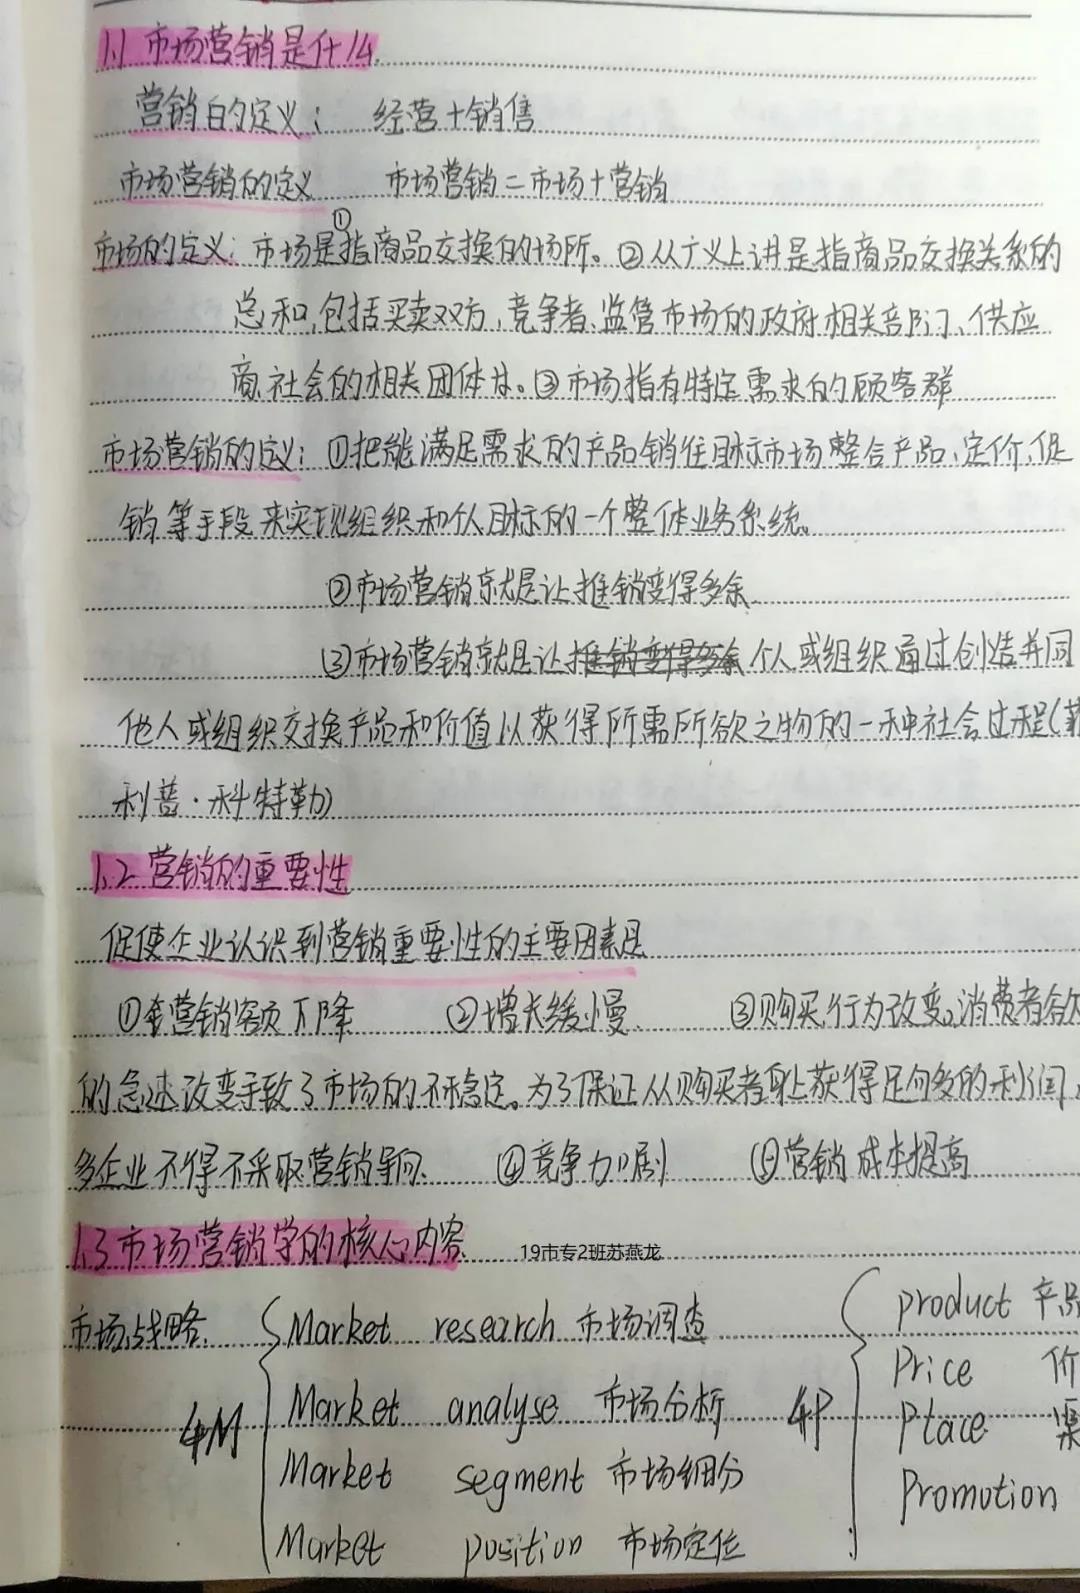 1.1 市场营销是什么
营销的定义： 经营+销售
市场营销的定义 市场营销=市场+营销
市场的定义：市场是①指商品交换的场所。②从广义上讲是指商品交换关系的
总和,包括买卖双方,竞争者、监管市场的政府相关部门、供应
商、社会的相关团体等。③市场指有特定需求的顾客群
市场营销的定义：①把能满足需求的产品销往目标市场整合产品、定价、促
销等手段来实现组织和个人目标的一个整体业务系统。
②市场营销就是让推销变得多余
③市场营销就是让推销变得多余个人或组织通过创造并同
他人或组织交换产品和价值以获得所需所欲之物的一种社会过程(菲
利普·科特勒)
1.2 营销的重要性
促使企业认识到营销重要性的主要因素是
①营销额下降 ②增长缓慢 ③购买行为改变。消费者欲
的急速改变导致了市场的不稳定。为了保证从购买者身上获得足够多的利润
多企业不得不采取营销导向. ④竞争加剧 ⑤营销成本提高
1.3 市场营销学的核心内容 19市专2班苏燕龙
市场战略. Market research 市场调查 product 产品
4M Market analyse 市场分析 4P Price 价
Market segment 市场细分 Place 渠
Market position 市场定位 Promotion